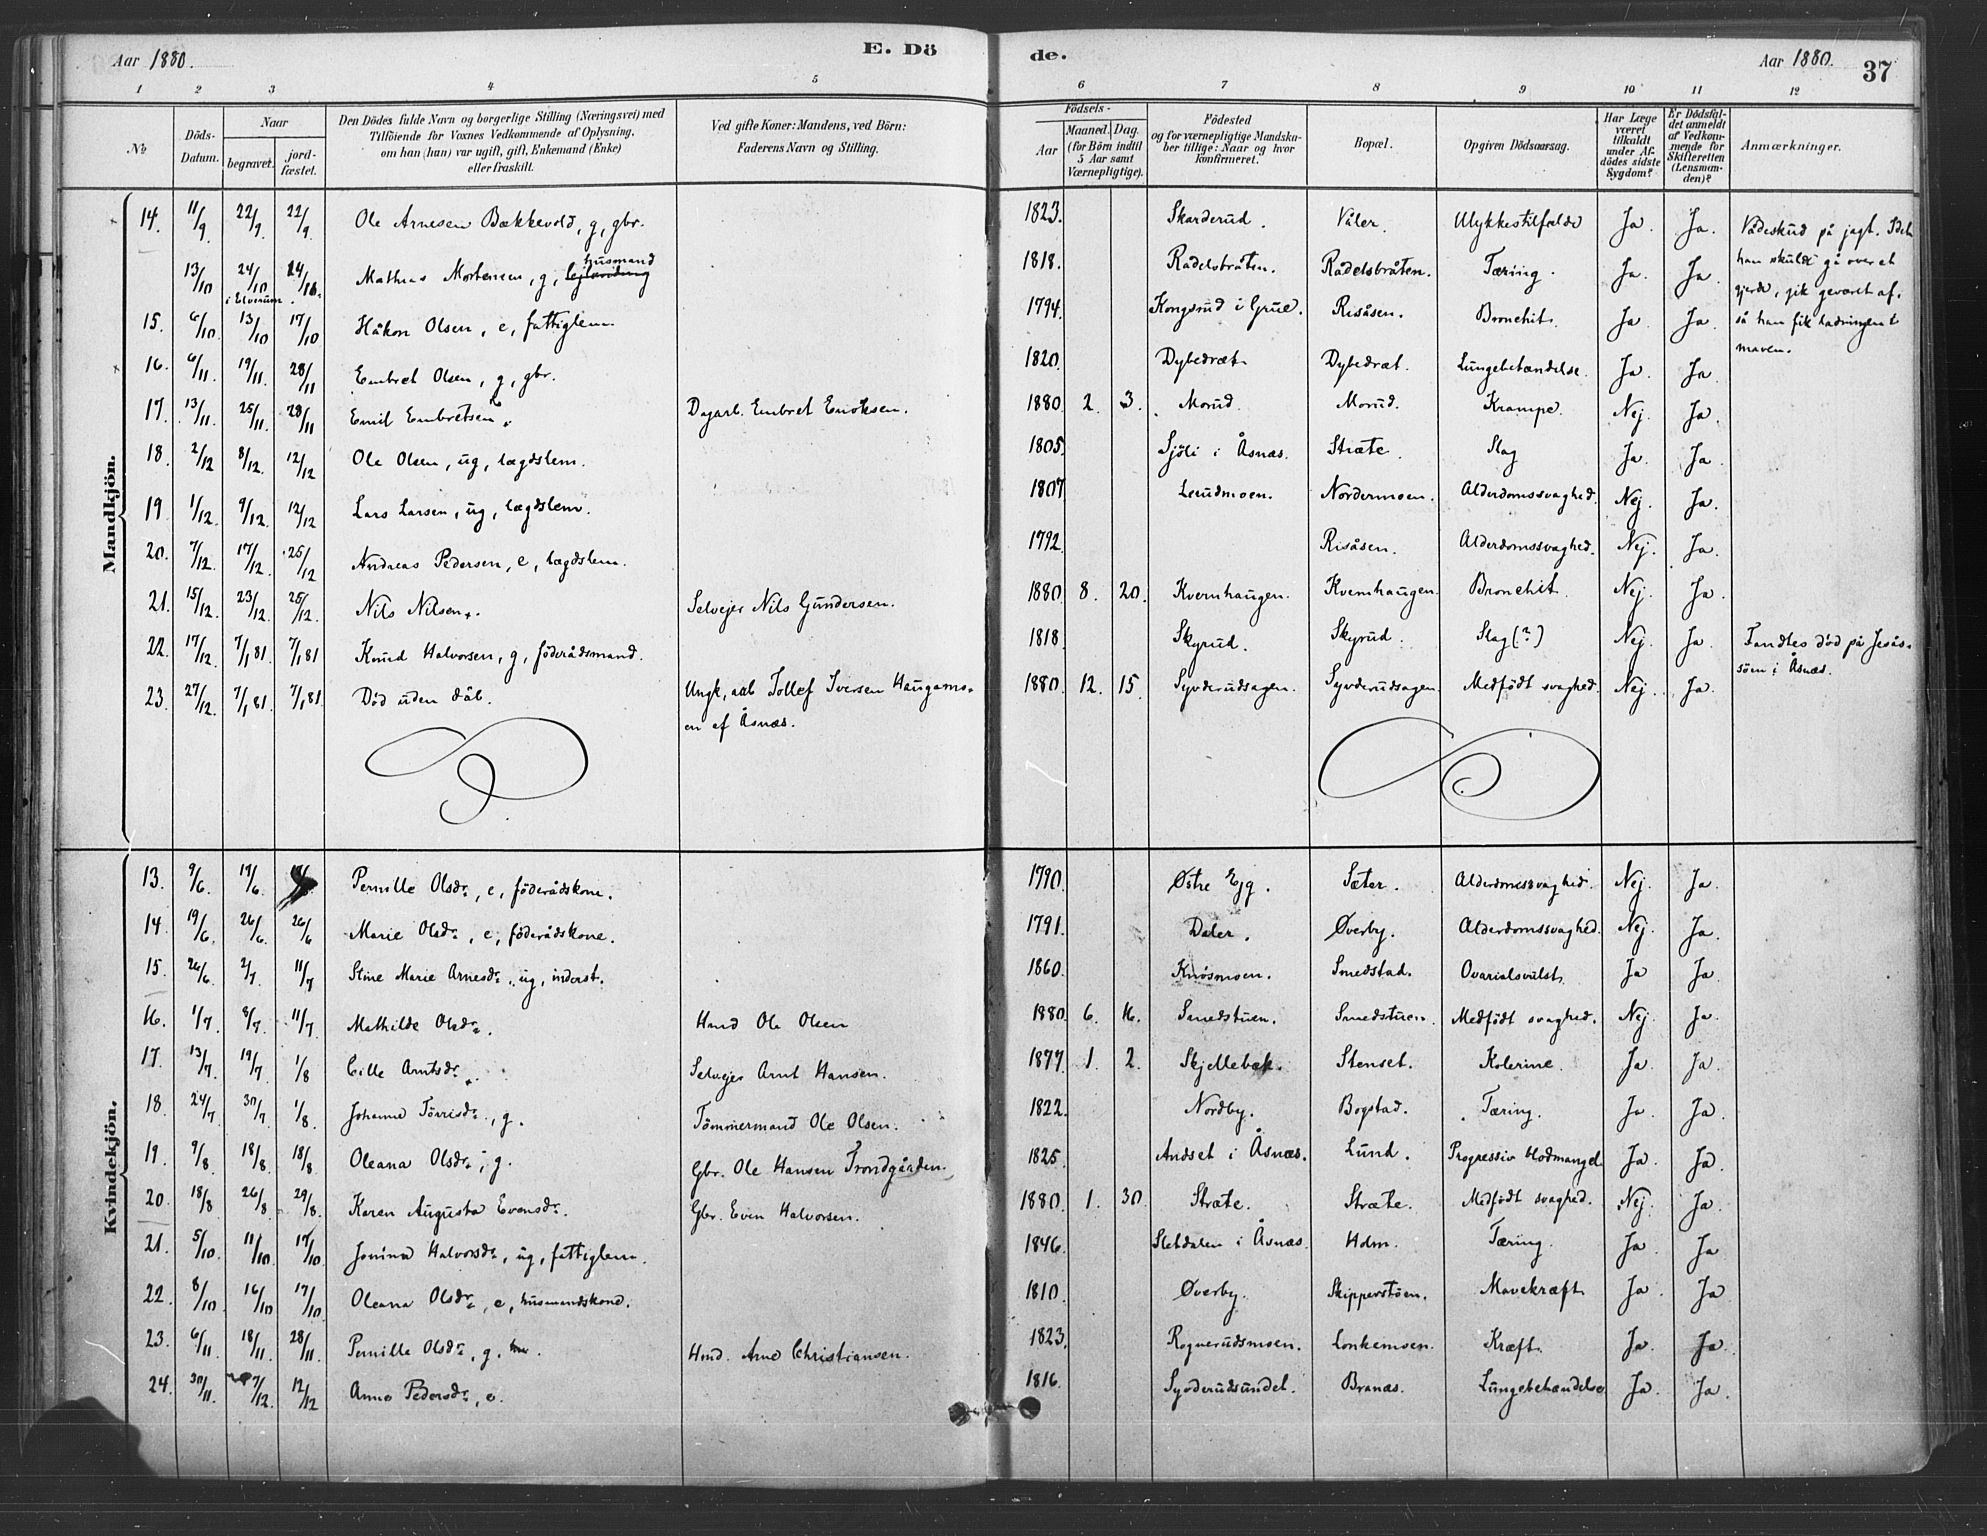 Aar 1880. E. Dö de. Aar 1880. 37
1 2 3 4 5 6 7 8 9 10 11 12
No Döds-Datum. Naar begravet. jord-fæstet. Den Dödes fulde Navn og borgerlige Stilling (Næringsvei) med Tilföiende for Voxnes Vedkommende af Oplysning, om han (hun) var ugift, gift, Enkemand (Enke) eller fraskilt. Ved gifte Koner: Mandens, ved Börn: Faderens Navn og Stilling. Födsels- Aar Maaned. Dag. (for Börn indtil 5 Aar samt Værnepligtige). Födested og for værnepligtige Mandska-ber tillige: Naar og hvor konfirmeret. Bopæl. Opgiven Dödsaarsag. Har Læge været tilkaldt under Af-dödes sidste Sygdom? Er Dödsfal-det anmeldt af Vedkom-mende for Skifteretten (Lensman-den)? Anmærkninger.
Mandkjön.
14. 11/9. 22/9. 22/9. Ole Arnesen Bækkevold, g, gbr. 1823. Skarderud. Våler. Ulykkestilfælde Ja. Ja. Vådeskud på jagt. Idet
han skulde gå over et
gjerde, gik geværet af,
så han fik ladningen i
maven.
husmand
13/10 24/10 i Elverum. 24/10. Mathias Mortensen, g, 1818. Rådelsbråten. Rådelsbråten. Tæring. Ja. Ja.
15. 6/10. 13/10 17/10 Håkon Olsen, e, fattiglem. 1794. Kongsrud i Grue. Risåsen. Bronchit. Ja. Ja.
16. 6/11. 19/11. 28/11 Embret Olsen, g, gbr. 1820. Dybedræt Dybedræt. Lungebetændelse. Ja. Ja.
17. 13/11. 25/11. 28/11 Emil Embretsen. Dagarb. Embret Enoksen. 1880 2. 3. Morud. Morud. Krampe. Nej. Ja.
18. 2/12 8/12. 12/12 Ole Olsen, ug, lægdslem. 1805. Sjöli i Åsnæs. Stræte. Slag Ja. Ja.
19. 1/12. 9/12. 12/12 Lars Larsen, ug, lægdslem. 1807 Nordermoen. Alderdomssvaghed. Nej. Ja.
20. 7/12. 17/12. 25/12 Andreas Pedersen, e, lægdslem. 1792. Risåsen. Alderdomssvaghed. Nej. Ja.
21. 15/12. 23/12. 25/12. Nils Nilsen. Selvejer Nils Gundersen. 1880. 8. 20. Kvernhaugen. Kvernhaugen. Bronchit. Nej. Ja.
22. 17/12. 7/1 81. 7/1 81 Knud Halvorsen, g, föderådsmand. 1818. Skyrud. Skyrud. Slag (?) Nej. Ja. Fandtes död på Jesås-
söen i Åsnæs.
23. 27/12. 7/1 81. 7/1 81. Död uden dåb. Ungk. arb. Tollef Iversen Haugams-
en af Åsnæs. 1880. 12. 15. Syvderudsagen. Syvderudsagen. Medfödt svaghed. Nej. Ja.
Kvindekjön.
13. 9/6. 19/6. Pernille Olsdr., e, föderådskone. 1790. Østre Ejg. Sæter. Alderdomssvaghed. Nej. Ja.
14. 19/6. 26/6. 26/6 Marie Olsdr., e, föderådskone. 1791. Daler. Øverby. Alderdomssvaghed. Nej. Ja.
15. 26/6. 2/7. 11/7 Stine Marie Arnesdr., ug, inderst. 1860. Knösmoen. Smedstad. Ovarialsvulst. Ja Ja.
16. 1/7. 8/7. 11/7 Mathilde Olsdr. Hmd Ole Olsen 1880. 6. 16. Smedstuen. Smedstuen. Medfödt svaghed. Nej. Ja.
17. 13/7. 19/7. 1/8 Cille Arntsdr. Selvejer Arnt Hansen. 1877 1. 2. Skjellebæk. Stenset. Kolerine. Ja. Ja.
18. 24/7. 30/7. 1/8. Johanne Törrisdr., g. Tömmermand Ole Olsen. 1822. Nordby. Bogstad. Tæring. Ja. Ja.
19. 9/8. 18/8. 18/8. Oleana Olsdr., g. Gbr. Ole Hansen Trondgården. 1825. Andset i Åsnæs. Lund. Progressiv blodmangel Ja. Ja.
20. 18/8 26/8. 29/8. Karen Augusta Evensdr. Gbr. Even Halvorsen. 1880. 1. 30. Stræte. Stræte. Medfödt svaghed. Nej. Ja.
21. 5/10. 11/10 17/10 Jonina Halvorsdr., ug, fattiglem. 1846. Sletdalen i Åsnæs. Holm. Tæring. Ja. Ja.
22. 8/10. 16/10 17/10 Oleana Olsdr., e, husmandskone. 1810. Øverby. Skipperstöen. Mavekræft. Ja. Ja
23. 6/11. 18/11. 28/11. Pernille Olsdr., g. Hmd. Arne Christiansen. 1823. Rognerudsmoen. Lonkemoen. Kræft. Ja. Ja.
24. 30/11. 7/12. 12/12 Anne Pedersdr., e. 1816. Syvderudsundet. Branæs. Lungebetændelse Ja. Ja.